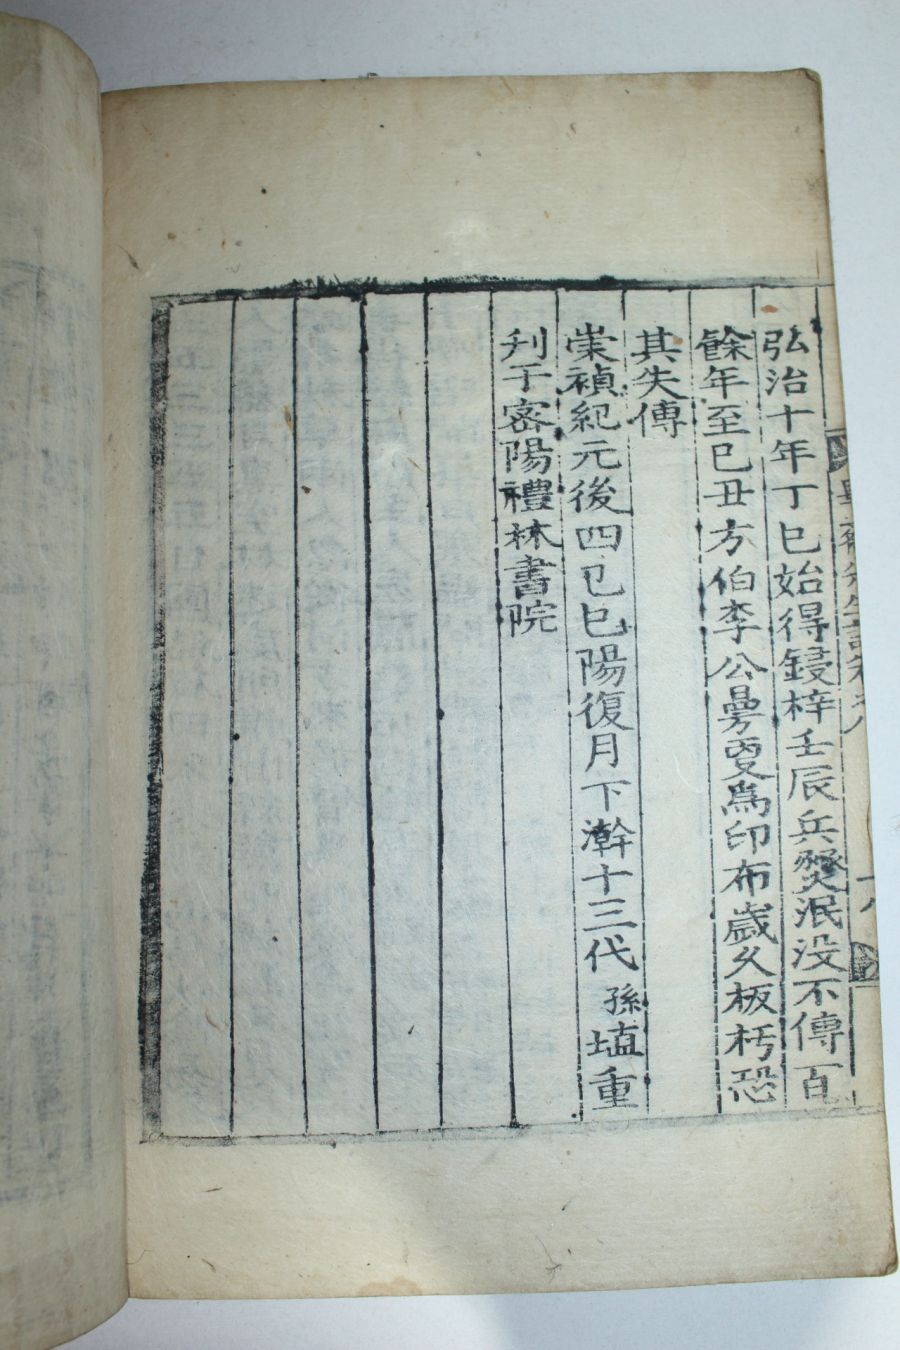 弘治十年丁巳始得鋟梓壬辰兵燹泯没不傳百
餘年至己丑方伯李公曼更爲印布歲久板朽恐
其失傳
崇禎紀元後四己巳陽復月下澣十三代孫埴重
刋于密陽禮林書院
先生詩卷之八
十八